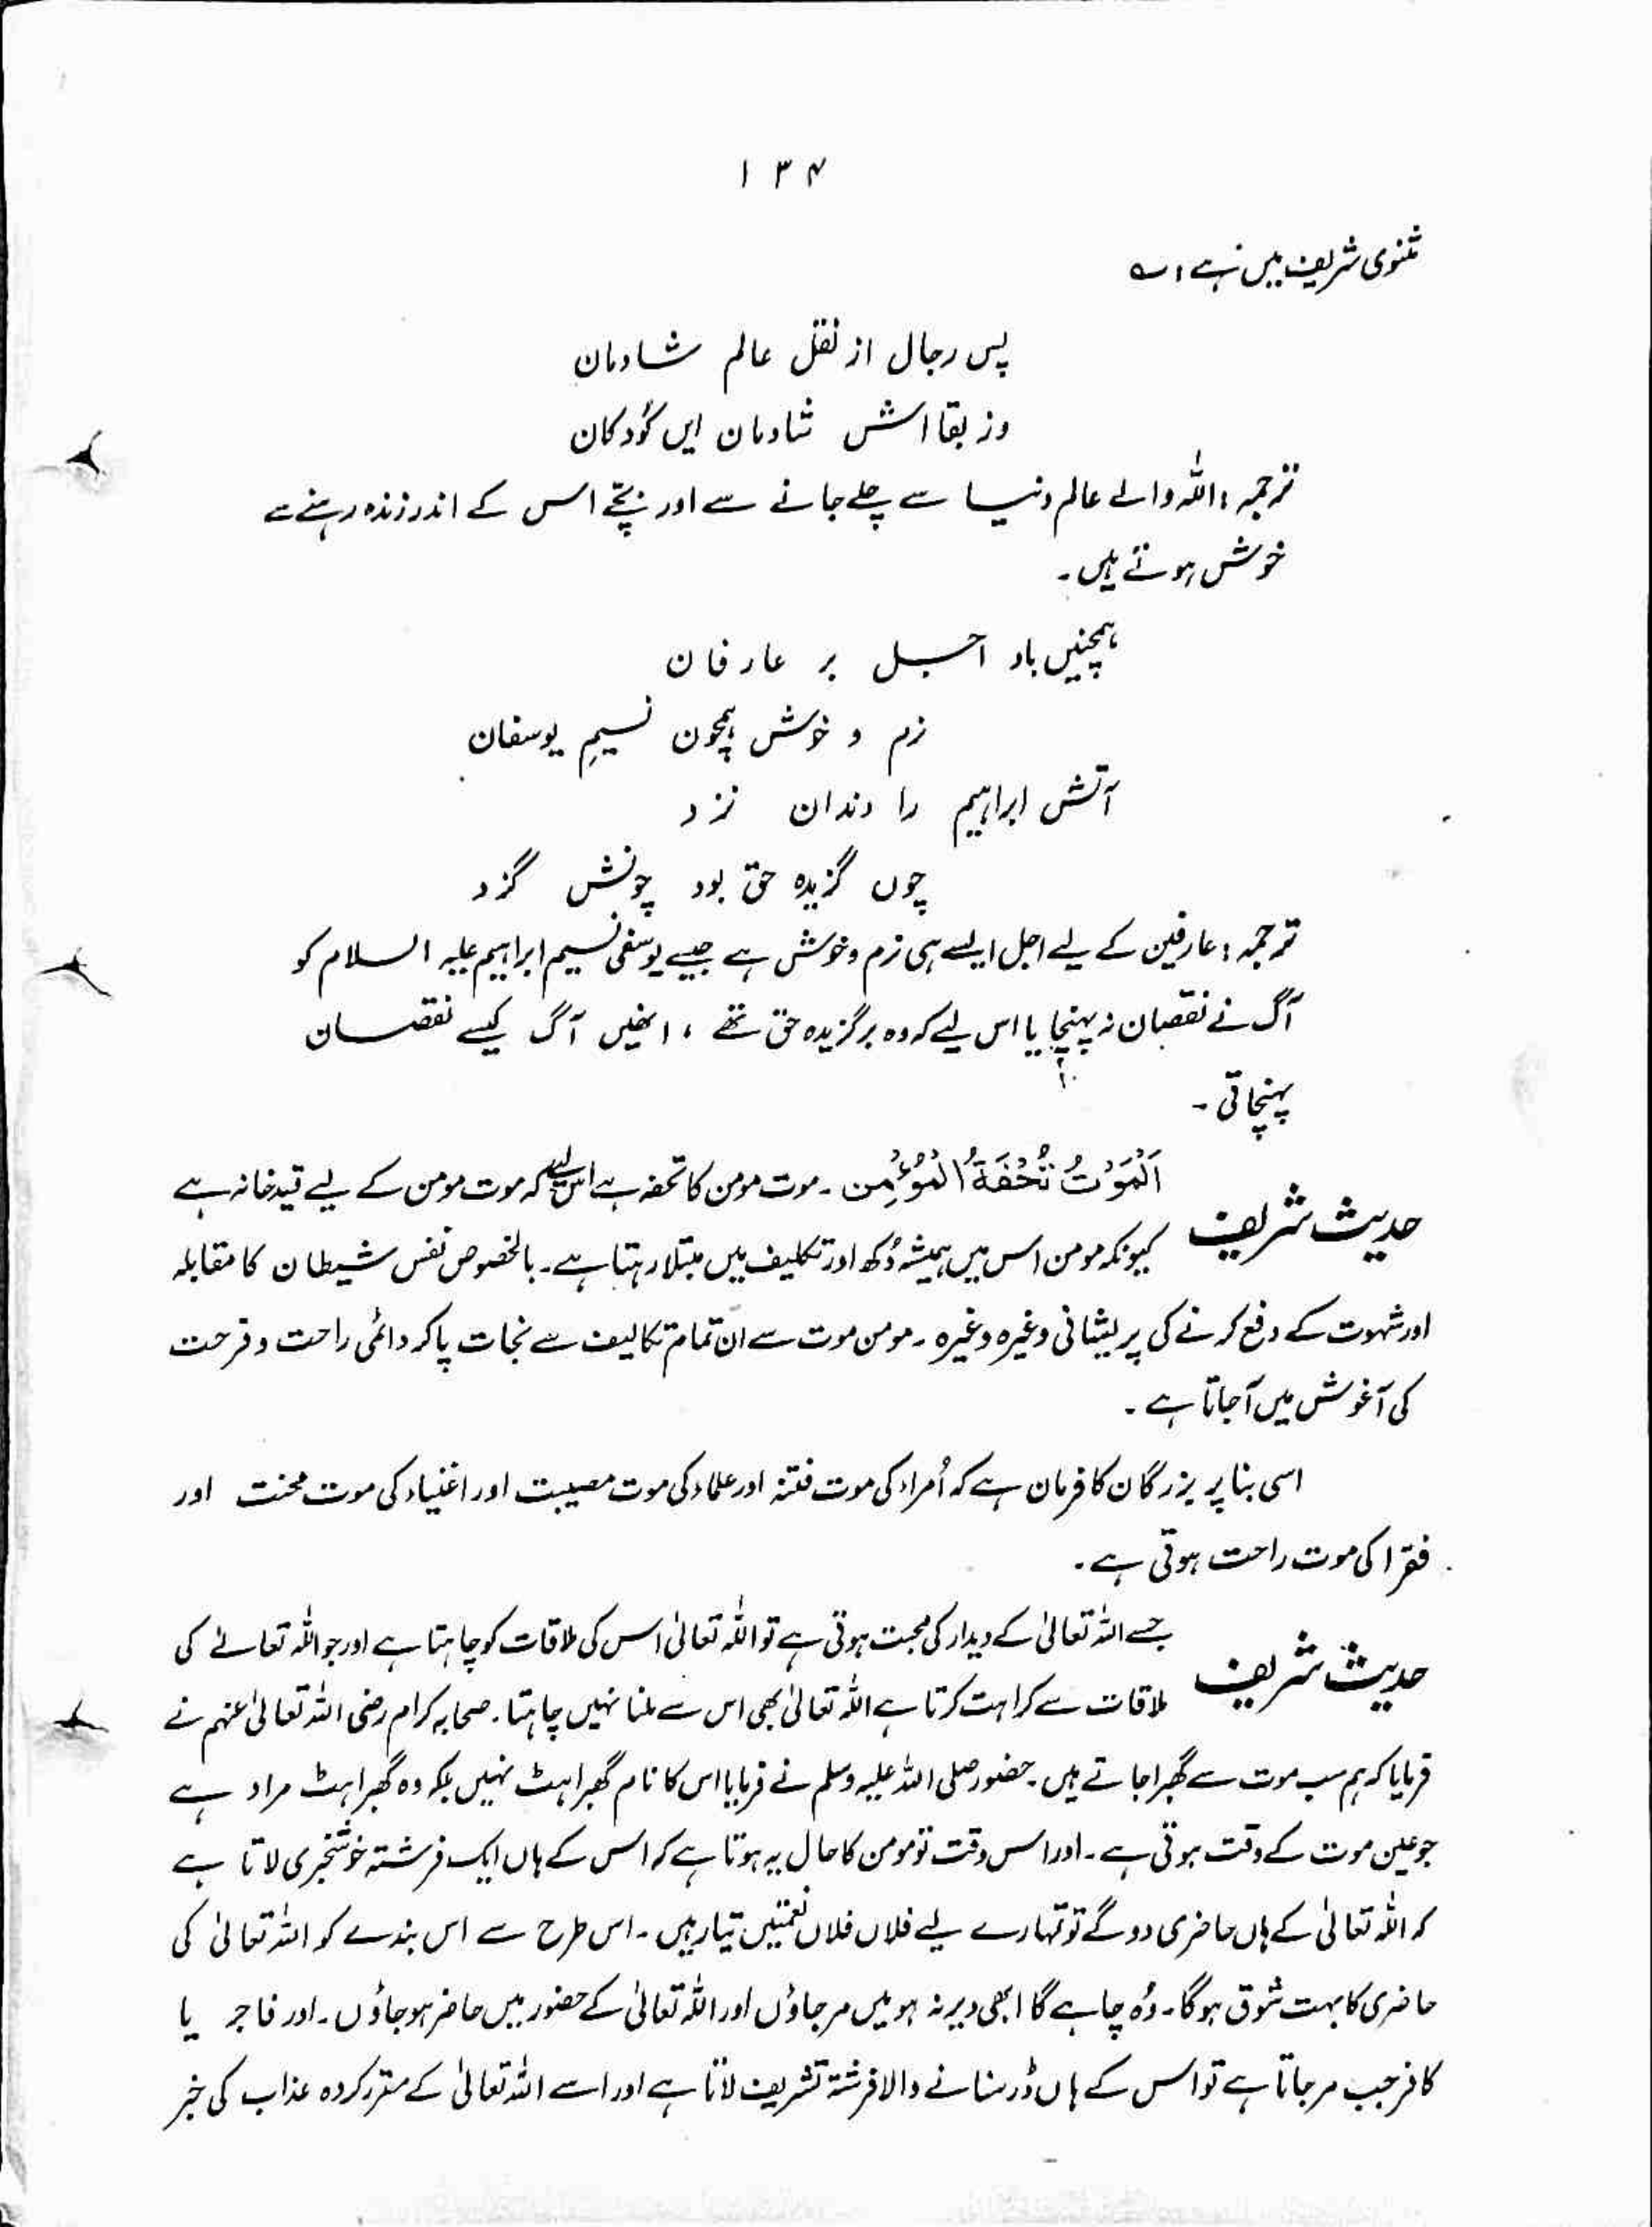 ۱۳۴
مثنوی شریف میں ہے : ؎
پس رجال از نقل عالم شادمان
وز بقااش شادمان ایں کودکان
ترجمہ : اللہ والے عالم دنیا سے چلے جانے سے اور بچے اس کے اندر زندہ رہنے سے
خوش ہوتے ہیں۔
ہمچنیں باد اجل بر عارفان
نرم و خوش ہمچون نسیمِ یوسفان
آتش ابراہیم را دندان نزد
چوں گزیدہ حق بود چونش گزد
ترجمہ : عارفین کے لیے اجل ایسے ہی نرم و خوش ہے جیسے یوسفی نسیم ابراہیم علیہ السلام کو
آگ نے نقصان نہ پہنچایا اس لیے کہ وہ برگزیدہ حق تھے ، انھیں آگ کیسے نقصان
پہنچاتی ۔
حدیث شریف اَلْمَوْتُ تُحْفَۃُ الْمُؤْمِن ۔ موت مومن کا تحفہ ہے اس لیے کہ موت مومن کے لیے قید خانہ ہے
کیونکہ مومن اس میں ہمیشہ دُکھ اور تکلیف میں مبتلا رہتا ہے۔ بالخصوص نفس شیطان کا مقابلہ
اور شہوت کے دفع کرنے کی پریشانی وغیرہ وغیرہ ۔ مومن موت سے ان تمام تکالیف سے نجات پا کر دائمی راحت و فرحت
کی آغوش میں آ جاتا ہے ۔
اسی بنا پر بزرگان کا فرمان ہے کہ اُمراء کی موت فتنہ اور علماء کی موت مصیبت اور اغنیاء کی موت محنت اور
فقرا کی موت راحت ہوتی ہے ۔
حدیث شریف جسے اللہ تعالیٰ کے دیدار کی محبت ہوتی ہے تو اللہ تعالیٰ اس کی ملاقات کو چاہتا ہے اور جو اللہ تعالےٰ کی
ملاقات سے کراہت کرتا ہے اللہ تعالیٰ بھی اس سے ملنا نہیں چاہتا ۔ صحابہ کرام رضی اللہ تعالیٰ عنہم نے
فرمایا کہ ہم سب موت سے گھبرا جاتے ہیں ۔ حضور صلی اللہ علیہ وسلم نے فرمایا اس کا نام گھبراہٹ نہیں بلکہ وہ گھبراہٹ مراد ہے
جو عین موت کے وقت ہوتی ہے ۔ اور اس وقت تو مومن کا حال یہ ہوتا ہے کہ اس کے ہاں ایک فرشتہ خوشخبری لاتا ہے
کہ اللہ تعالیٰ کے ہاں حاضری دو گے تو تمہارے لیے فلاں فلاں نعمتیں تیار ہیں ۔ اس طرح سے اس بندے کو اللہ تعالیٰ کی
حاضری کا بہت شوق ہوگا ۔ وُہ چاہے گا ابھی دیر نہ ہو میں مر جاؤں اور اللہ تعالیٰ کے حضور میں حاضر ہو جاؤں ۔ اور فاجر یا
کافر جب مر جاتا ہے تو اس کے ہاں ڈر سنانے والا فرشتہ تشریف لاتا ہے اور اسے اللہ تعالیٰ کے مقرر کردہ عذاب کی خبر